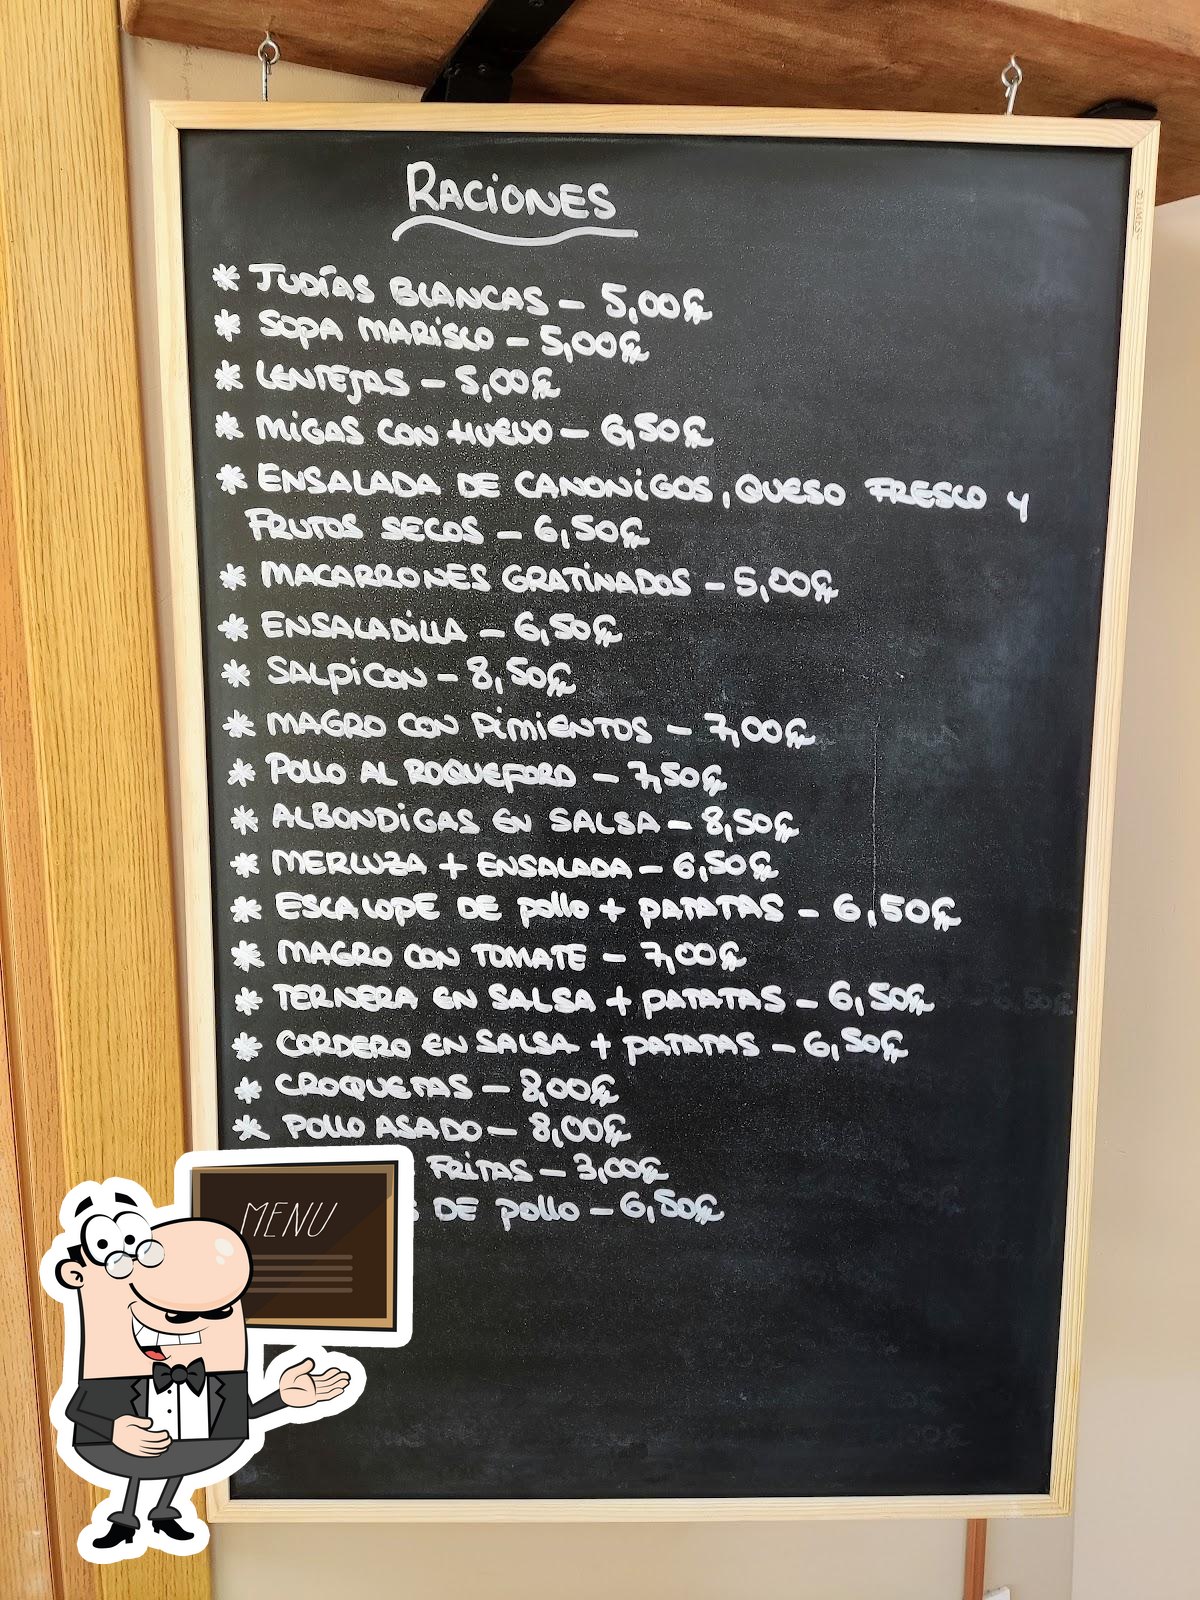 RACIONES
* JUDÍAS BLANCAS – 5,00€
* SOPA MARISCO – 5,00€
* LENTEJAS – 5,00€
* MIGAS CON HUEVO – 6,50€
* ENSALADA DE CANONIGOS, QUESO FRESCO Y
FRUTOS SECOS – 6,50€
* MACARRONES GRATINADOS – 5,00€
* ENSALADILLA – 6,50€
* SALPICON – 8,50€
* MAGRO CON PIMIENTOS – 7,00€
* POLLO AL ROQUEFORD – 7,50€
* ALBONDIGAS EN SALSA – 8,50€
* MERLUZA + ENSALADA – 6,50€
* ESCALOPE DE POLLO + PATATAS – 6,50€
* MAGRO CON TOMATE – 7,00€
* TERNERA EN SALSA + PATATAS – 6,50€
* CORDERO EN SALSA + PATATAS – 6,50€
* CROQUETAS – 8,00€
* POLLO ASADO – 8,00€
FRITAS – 3,00€
DE POLLO – 6,50€
MENU